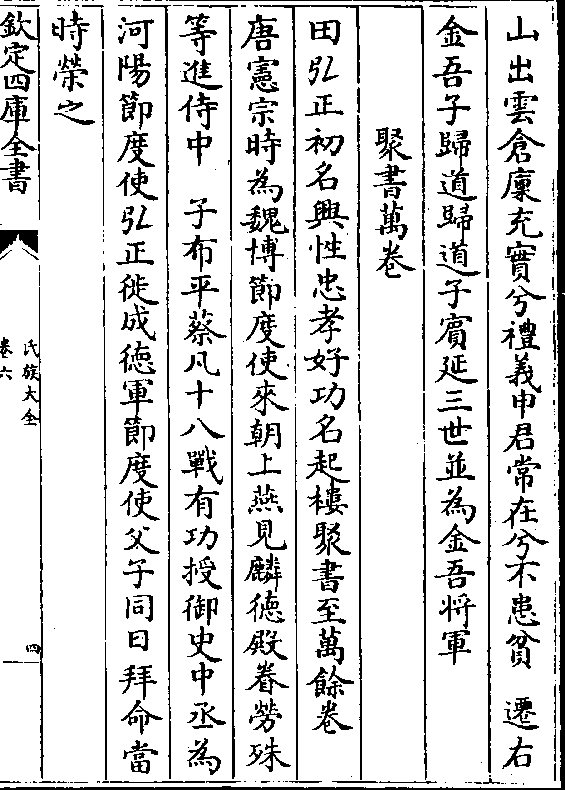 山出雲倉廩充實兮禮義申君常在兮不患貧　遷右
金吾子歸道歸道子賓延三世並為金吾将軍
聚書萬卷
田弘正初名興性忠孝好功名起樓聚書至萬餘卷
唐憲宗時為魏博節度使來朝上燕見麟徳殿眷勞殊
等進侍中　子布平蔡凡十八戰有功授御史中丞為
河陽節度使弘正徙成徳軍節度使父子同日拜命當
時榮之
欽定四庫全書
氏族大全
卷六
四